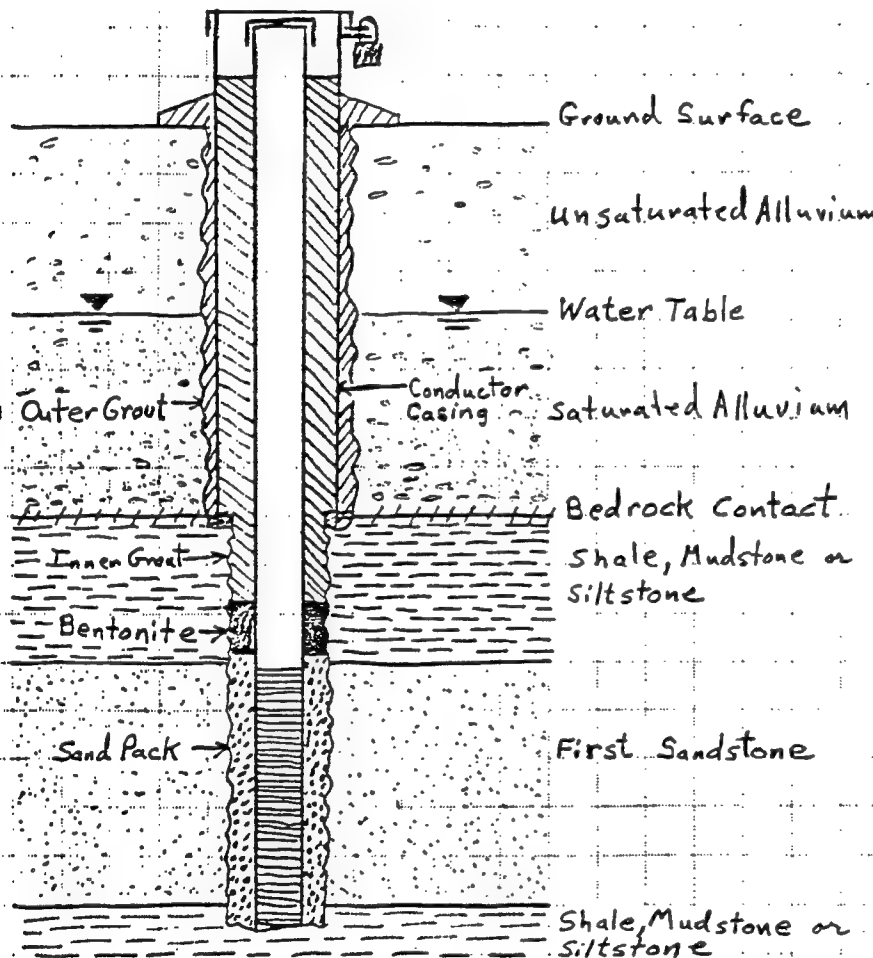 Ground Surface
Unsaturated Alluvium
Water Table
Outer Grout
Conductor
Casing
Saturated Alluvium
Bedrock Contact
Inner Grout
Shale, Mudstone or
Siltstone
Bentonite
Sand Pack
First Sandstone
Shale, Mudstone or
Siltstone